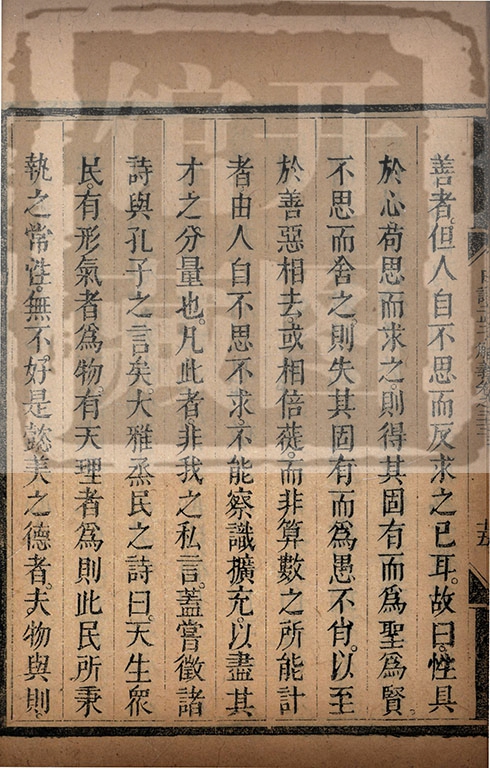 善者但人自不思而反求之已耳。故曰性具
於心苟思而求之則得其固有而爲聖爲賢
不思而舍之則失其固有而爲愚不肖。以至
於善惡相去。或相倍蓰。而非算數之所能計
者由人自不思不求。不能察識擴充。以盡其
才之分量也。凡此者非我之私言。蓋嘗徵諸
詩與孔子之言矣。大雅烝民之詩曰。天生衆
民。有形氣者爲物。有天理者爲則此民所秉
執之常性。無不。好是懿美之德者。夫物與則。